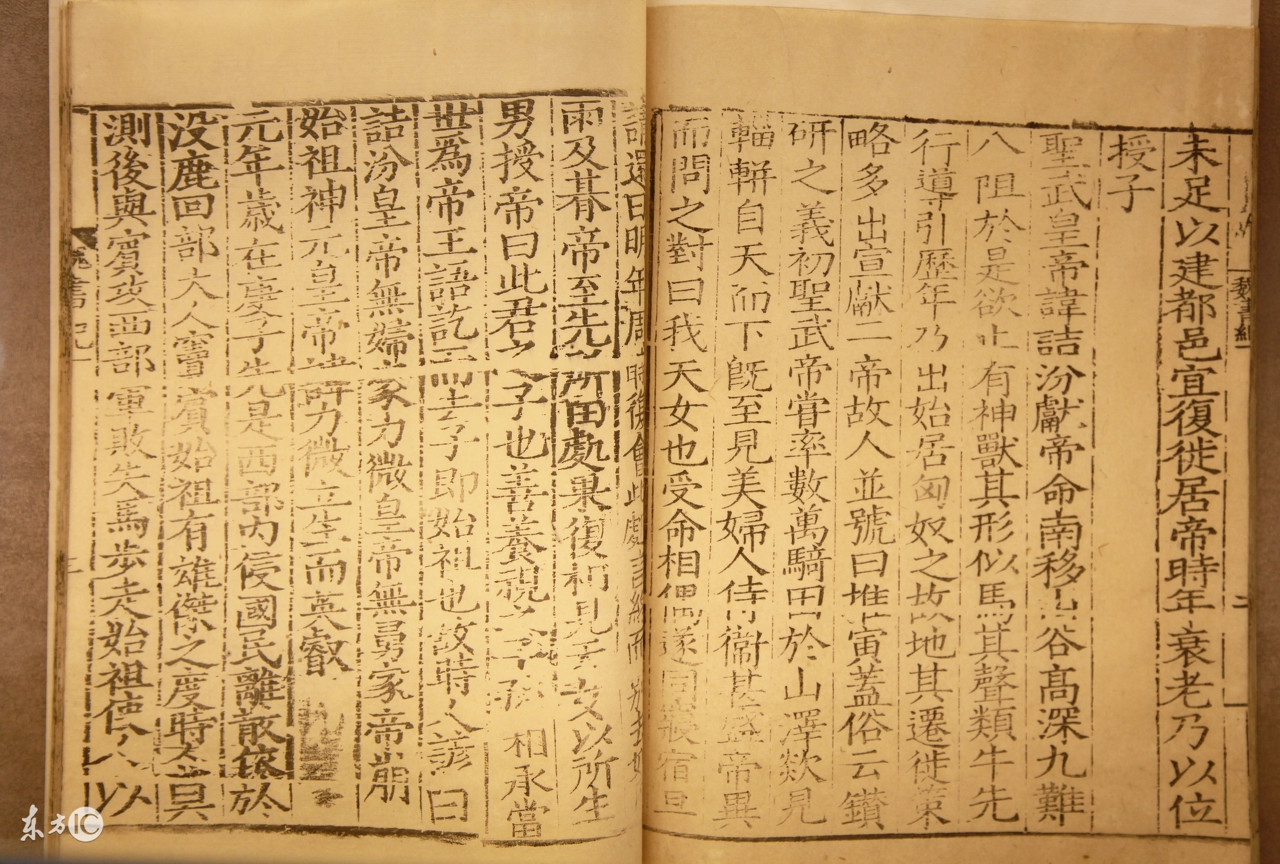 未足以建都邑宜復徙居帝時年衰老乃以位
授子
聖武皇帝諱詰汾獻帝命南移山谷高深九難
八阻於是欲止有神獸其形似馬其聲類牛先
行導引歷年乃出始居匈奴之故地其遷徙策
略多出宣獻二帝故人並號曰推寅蓋俗云鑽
研之義初聖武帝嘗率數萬騎田於山澤欻見
輜軿自天而下既至見美婦人侍衛甚盛帝異
而問之對曰我天女也受命相偶遂同寢宿旦
請還曰明年周時復會此處言終而別
雨及朞帝至先所田處果復相見天女以所生
男授帝曰此君之子也善養視之子孫相承當
世為帝王語訖而去子即始祖也故時人諺曰
詰汾皇帝無婦家力微皇帝無舅家帝崩
始祖神元皇帝諱力微立生而英叡
元年歲在庚子先是西部内侵國民離散依於
没鹿回部大人竇賓始祖有雄傑之度時人莫
測後與賓攻西部軍敗失馬步走始祖使人以
魏書紀一
东方IC